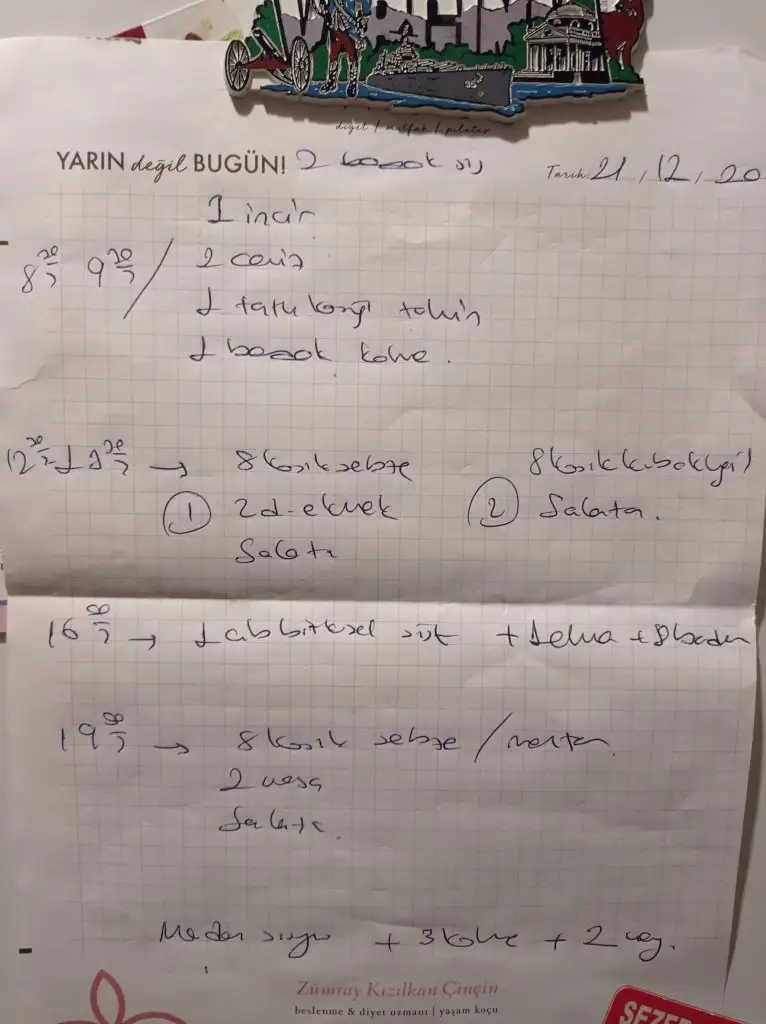 diyet | mutfak | pilates
YARIN değil BUGÜN! 2 bardak su
Tarih: 21, 12, 20
1 incir
8³⁰ 9³⁰ / 2 ceviz
1 tatlı kaşığı tahin
1 bardak kahve.
12³⁰-13³⁰ → 8 kaşık sebze
① 2 d-ekmek
Salata
8 kaşık k.baklagil
② Salata.
16 → 1 sb bitkisel süt + 1 elma + 8 badem
19 → 8 kaşık sebze / mantar.
2
Salata.
Maden suyu + 3 kahve + 2 çay.
Zümray Kızılkan Çinçin
beslenme & diyet uzmanı | yaşam koçu
SEZER